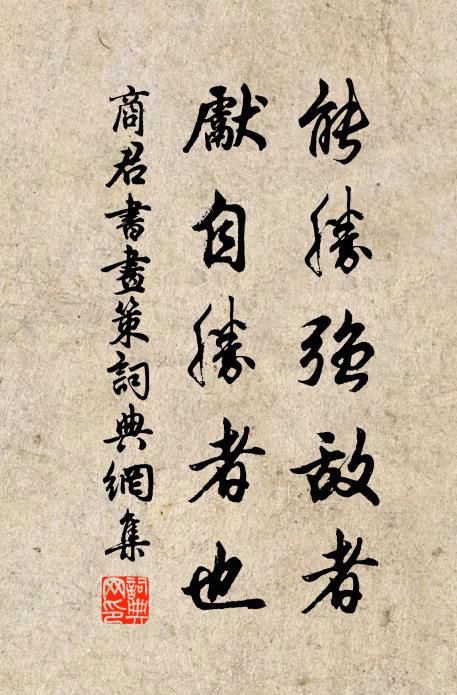 能勝强敌者
獻自勝者也
商君書畫策詞典網集
詞典
网印